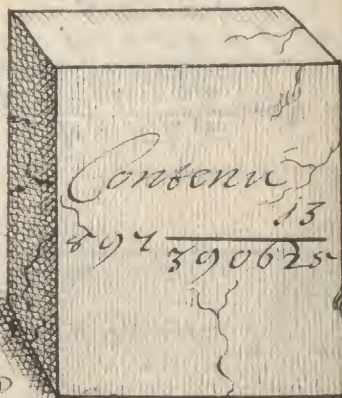 Contenu
13
390625